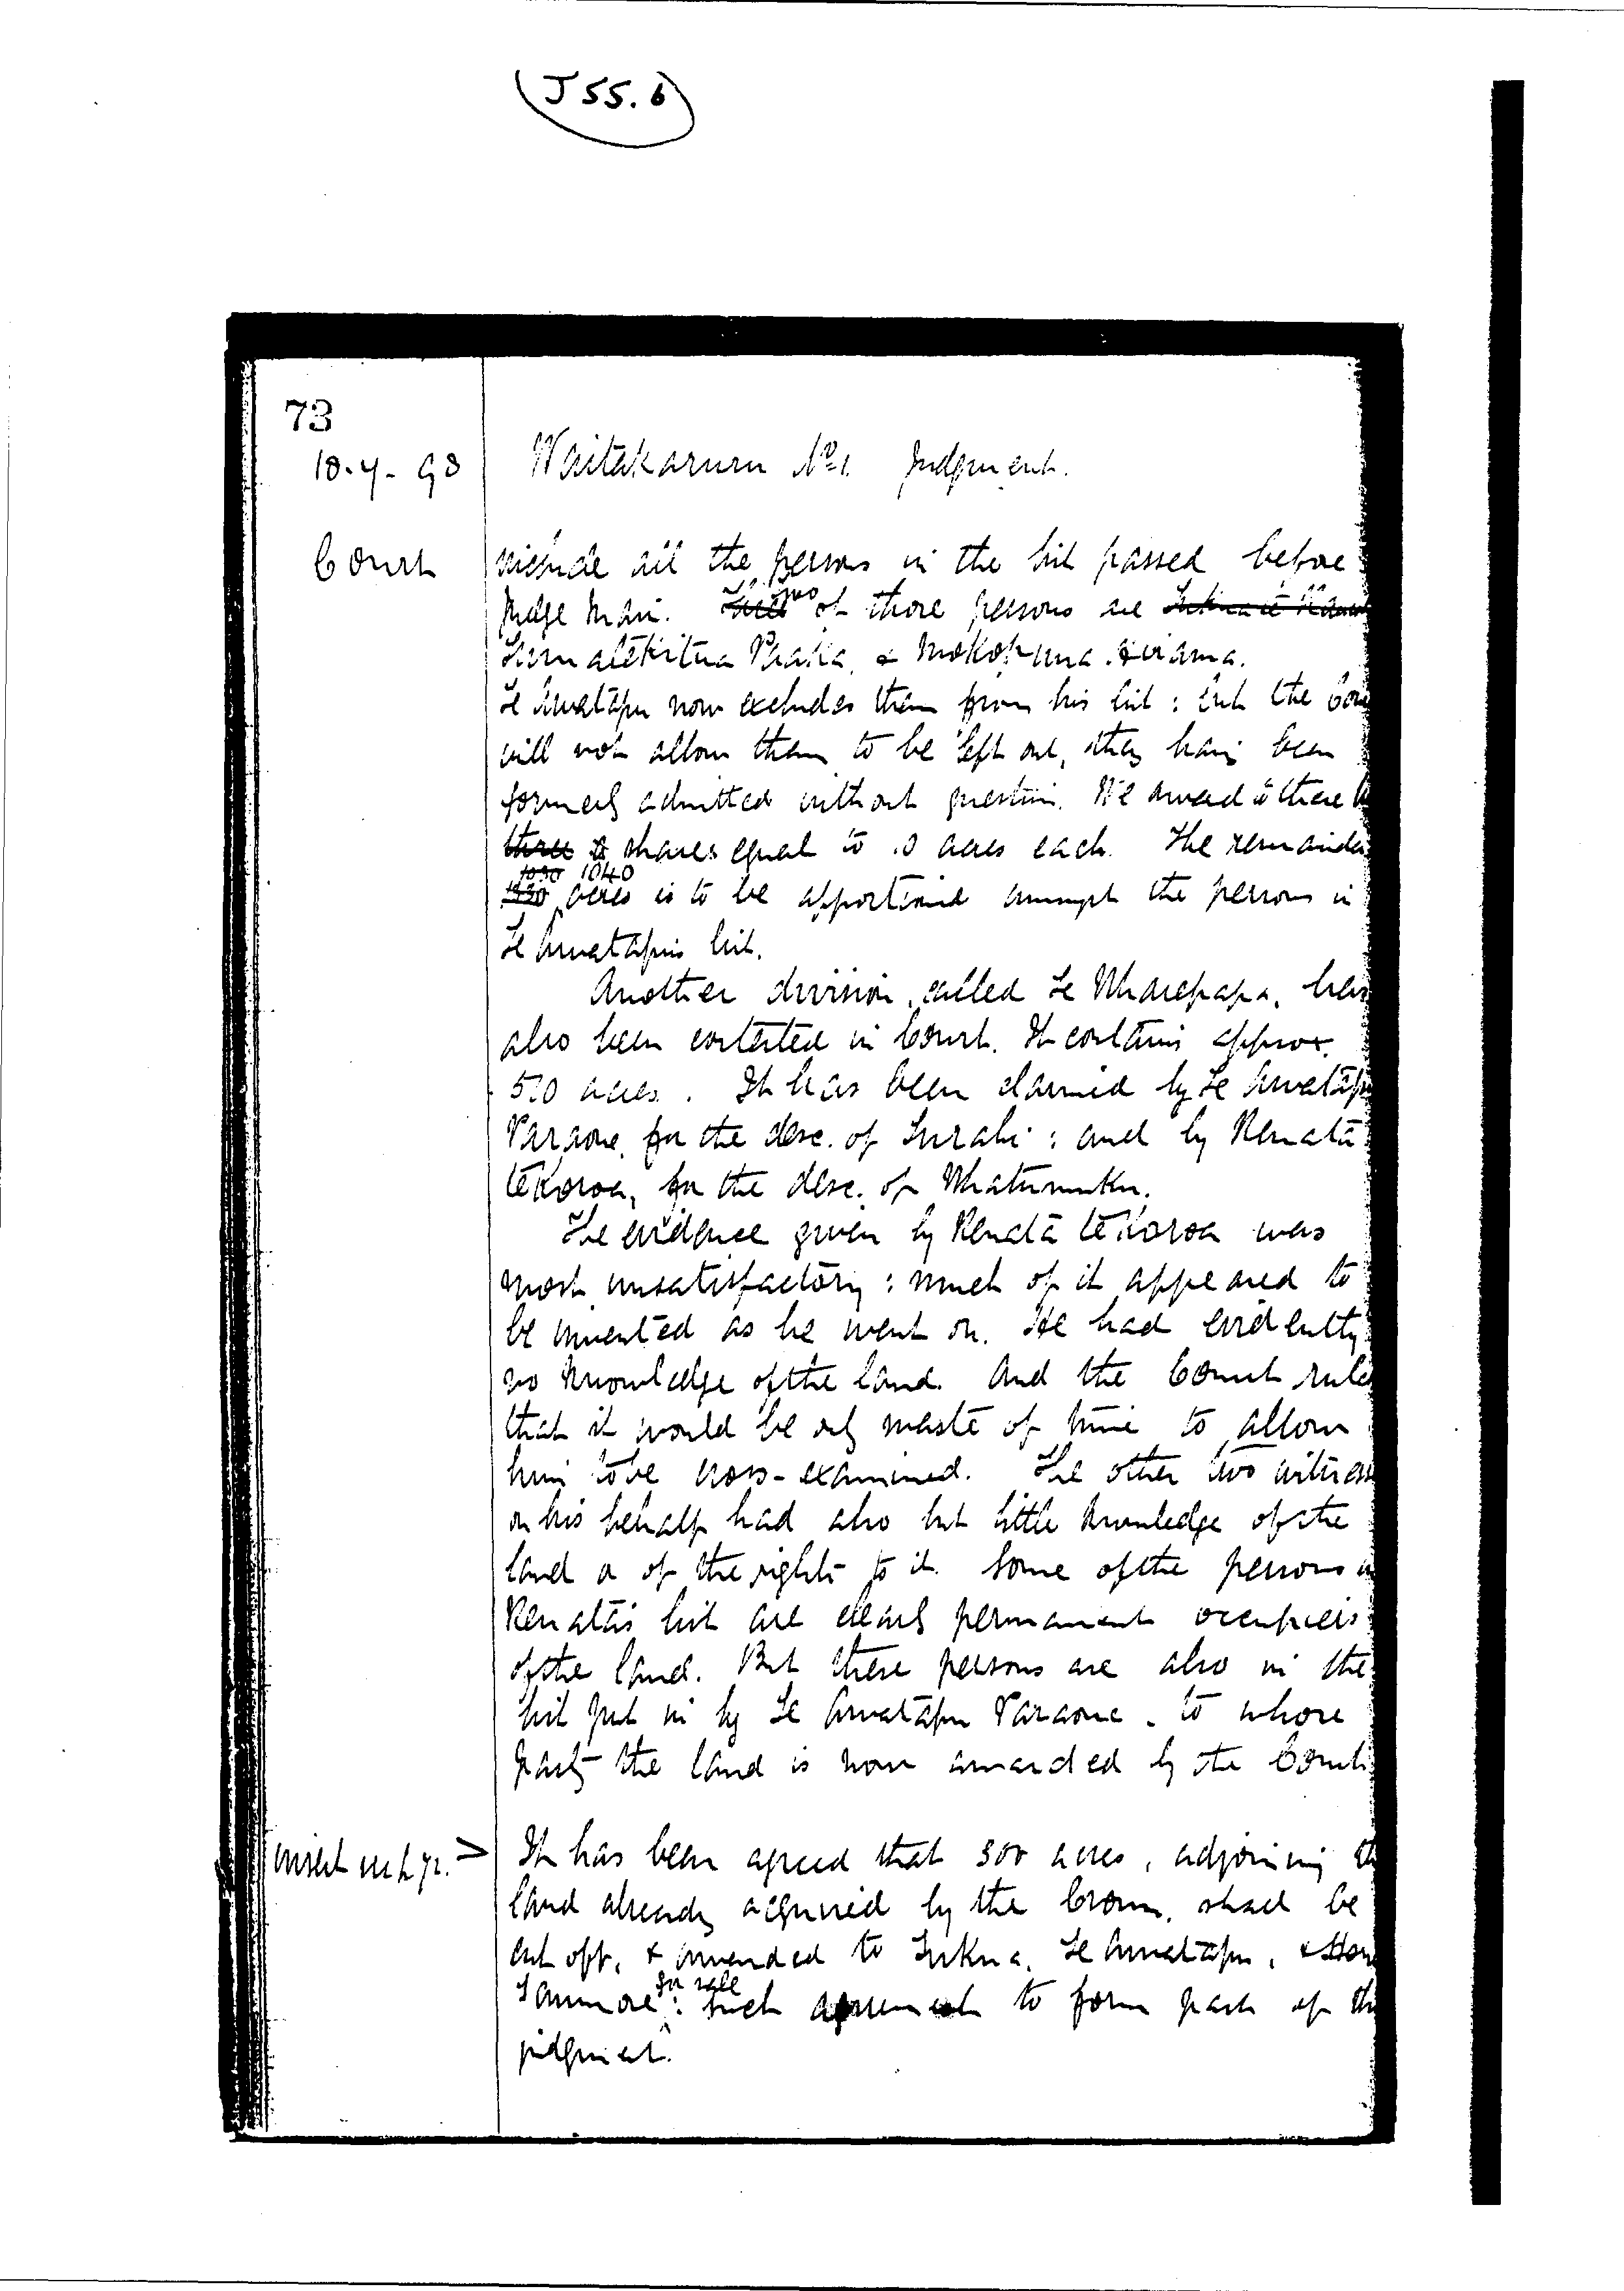 (J 55. 6)
73
10.4-98
Waitakaruru No 1. Judgment.
Court
include all the persons in the list passed before
Judge Mair. Three Two of those persons are
Tumatekitua Paaka, & Mokopuna
Te Awatapu now excludes them from his list : but the Cou
will not allow them to be left out, they having been
formerly admitted without question. We award to these
three shares equal to 10 acres each. The remainder
1030 1040
acres is to be apportioned amongst the persons in
Te Awatapu's list.
Another division, called Te Wharepapa, has
also been contested in Court. It contains approx.
510 acres. It has been claimed by Te Awatapu
Paraone, for the desc. of Turahi : and by Renata
te Koroa, for the desc. of Whatumuku.
The evidence given by Renata te Koroa was
most unsatisfactory : much of it appeared to
be invented as he went on. He had evidently
no knowledge of the land. And the Court rule
that it would be only waste of time to allow
him to be cross-examined. The other two witness
on his behalf had also but little knowledge of the
land or of the rights to it. Some of the persons in
Renata's list are clearly permanent occupiers
of the land. But these persons are also in the
list put in by Te Awatapu Paraone, to whose
party the land is now awarded by the Court.
insert
It has been agreed that 300 acres, adjoining th
land already acquired by the Crown, shall be
cut off, & awarded to Tukua, Te Awatapu, & Hon
for sale
Taumore : such agreement to form part of th
judgment.